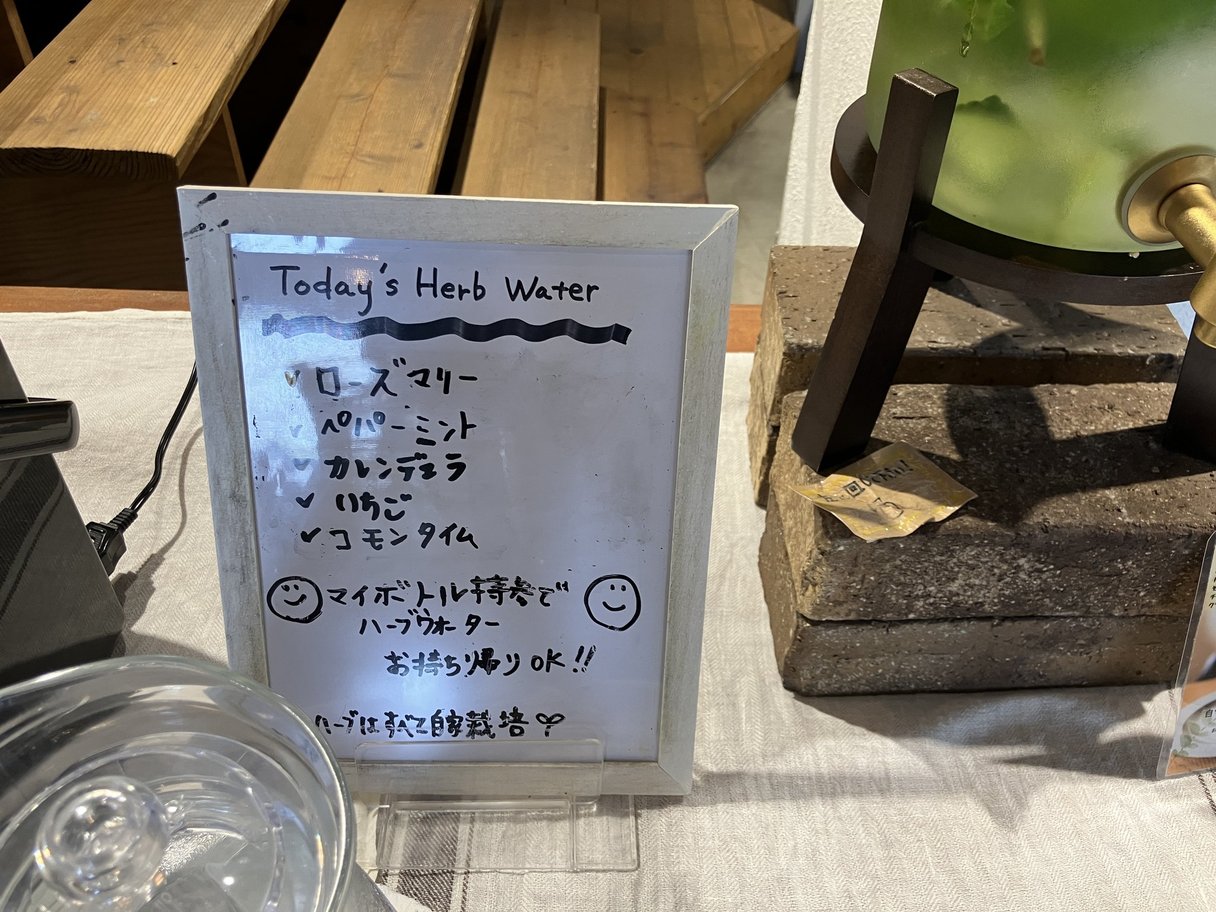 Today's Herb Water
✓ ローズマリー
✓ ペパーミント
✓ カレンデュラ
✓ いちご
✓ コモンタイム
マイボトル持参で
ハーブウォーター
お持ち帰りOK!!
ハーブはすべて自家栽培